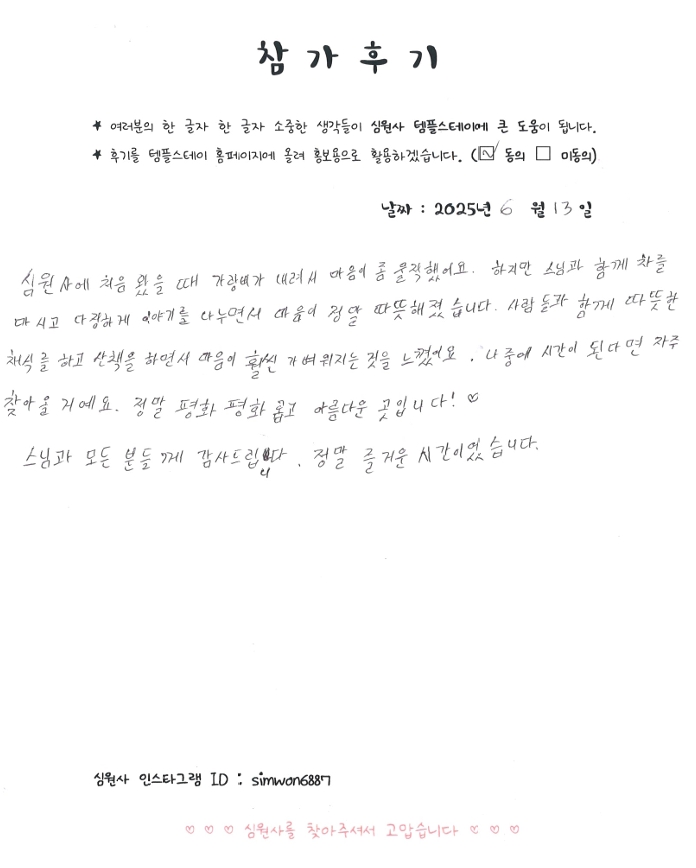 참가후기
★ 여러분의 한 글자 한 글자 소중한 생각들이 심원사 템플스테이에 큰 도움이 됩니다.
★ 후기를 템플스테이 홈페이지에 올려 홍보용으로 활용하겠습니다. (☑ 동의 □ 미동의)
날짜 : 2025년 6 월 13 일
심원사에 처음 왔을 때 가랑비가 내려서 마음이 좀 울적했어요. 하지만 스님과 함께 차를
마시고 다정하게 이야기를 나누면서 마음이 정말 따뜻해졌습니다. 사람들과 함께 따뜻한
채식을 하고 산책을 하면서 마음이 훨씬 가벼워지는 것을 느꼈어요. 나중에 시간이 된다면 자주
찾아올 거예요. 정말 평화 평화롭고 아름다운 곳입니다! ♡
스님과 모든 분들께 감사드립니다. 정말 즐거운 시간이었습니다.
심원사 인스타그램 ID : simwon6887
♡ ♡ ♡ 심원사를 찾아주셔서 고맙습니다 ♡ ♡ ♡